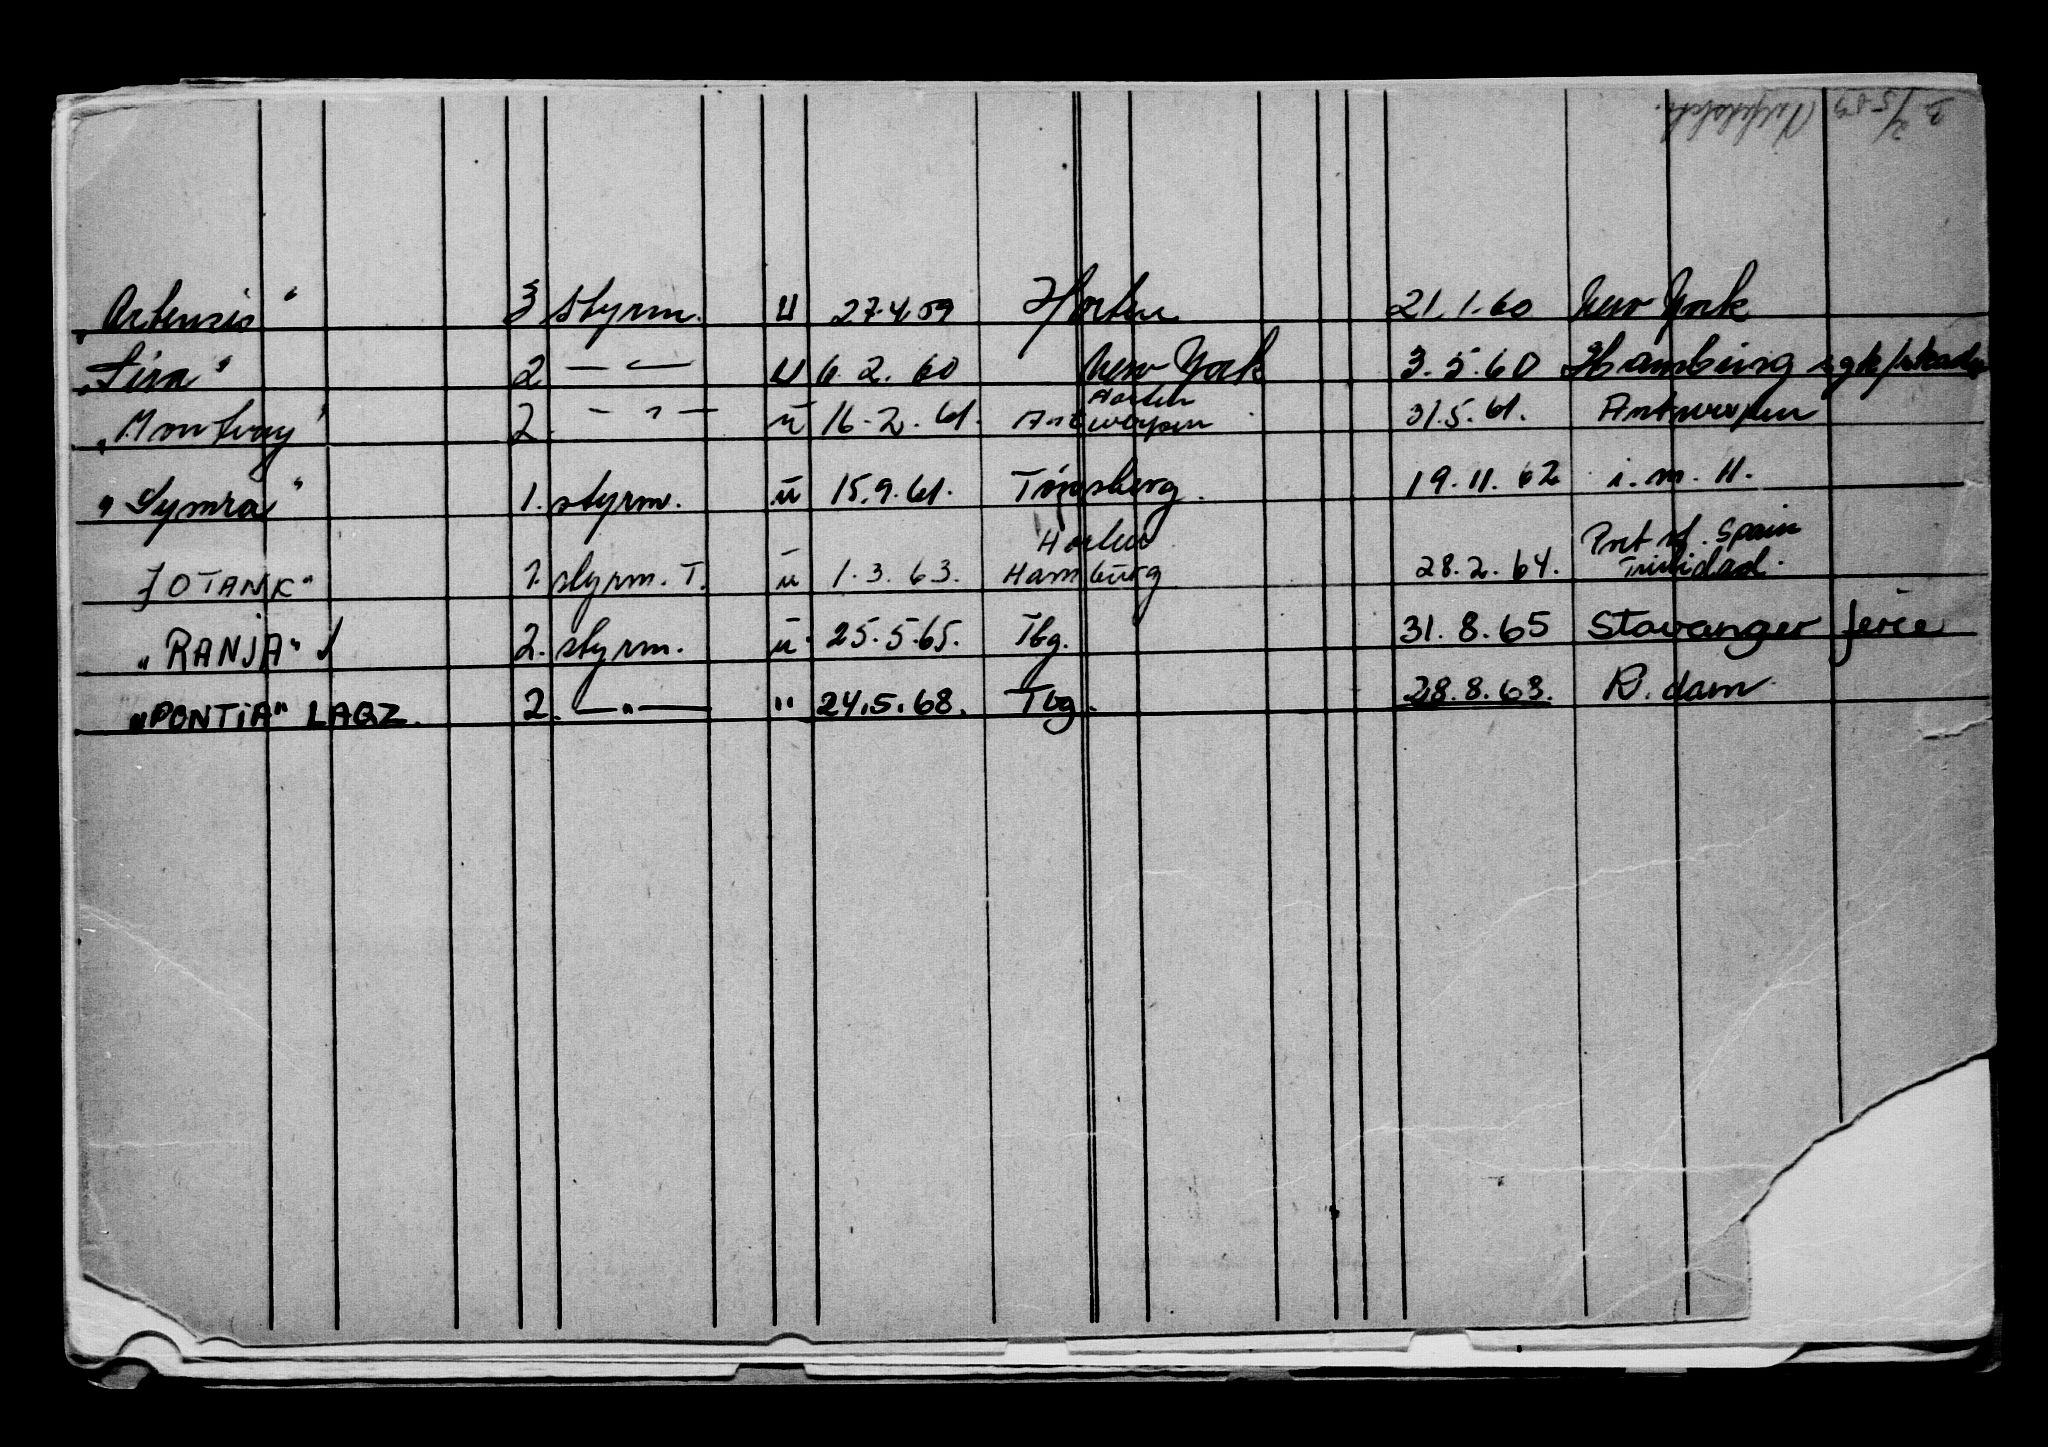 „Artensis" 3 styrm. u 27.4.59 Horten 21.1.60 New York
„Lira" 2 — — u 6.2.60 New York 3.5.60 Hamburg
Horten
„Monfray" 2. — " — u 16-2.61. Antwerpen 31.5.61. Antwerpen
„Symra" 1. styrm. u 15.9.61. Tønsberg. 19.11.62 i.m.H.
Horten Port of. Spain
JOTANK" 1. styrm. T. u 1.3.63. Hamburg 28.2.64. Trinidad.
„RANJA" 2. styrm. u. 25.5.65. Tbg. 31.8.65 Stavanger ferie
„PONTiA" LAQZ. 2. — " — " 24.5.68. Tbg. 28.8.68. R.dam